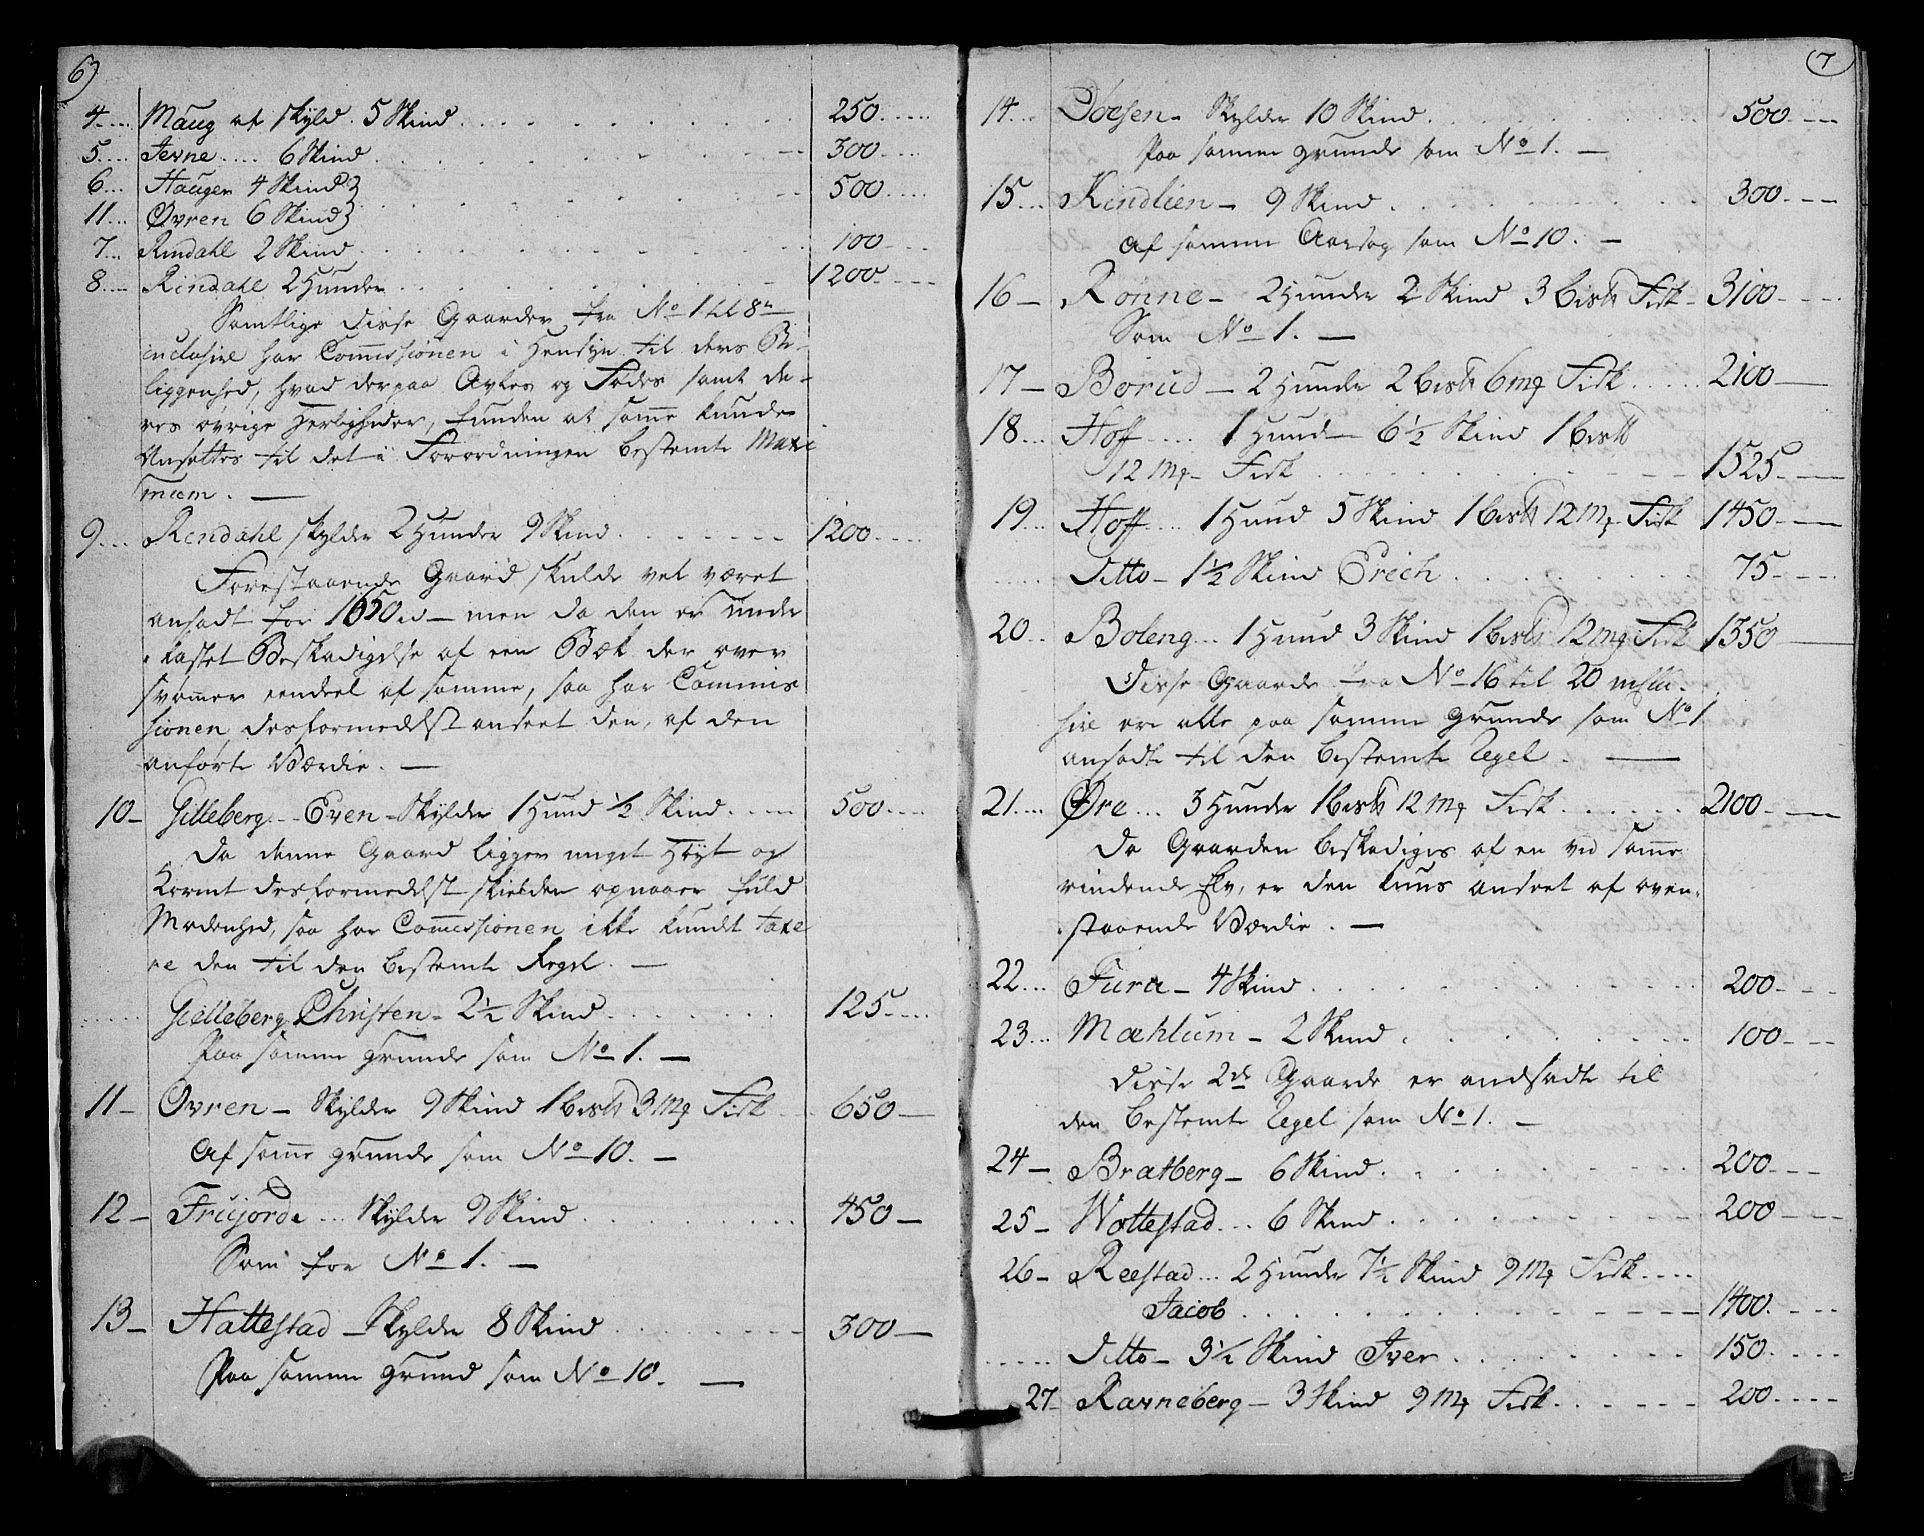 6)
4.... Maug af skyld. 5 Skind. . . . 250.....
5.... Jevne.... 6 Skind. . . . 300....
6... Hauger 4 Skind} . . . 500.....
11... Øvren 6 Skind}
7... Rindahl 2 Skind. . . . 100....
8.... Rindahl 2 Hunder. . . . 1200.....
Samtlige disse Gaarder fra No 1 til 8de
inclusive har Commissionen i Hensyn til deres Be-
liggenhed, hvad derpaa Avles og Fødes samt de-
res øvrige Herligheder, funden at samme kunde
Ansettes til det i Forordningen bestemte Maxi
mum. —
9... Rindahl skylder 2 Hunder 9 Skind. . . . 1200....
Forestaaende Gaard skulde vel været
ansadt for 1650 rd — men da den er under
kastet Beskadigelse af een Bæk der over
svømmer eendeel af samme, saa har Commis
sionen, desformedelst anseet den, af den
anførte Værdie. —
10— Gilleberg... Even - Skylder 1 Hund ½ Skind.... 500....
Da denne Gaard ligger meget Høyt og
Kornet desformedelst skielden opnaaer fuld
Modenhed, saa har Commissionen ikke kundet taxe
re den til den bestemte Regel. —
...... Gielleberg Christen - 2½ Skind. . . . 125....
Paa samme grunde som No 1. —
11— Ovren — Skylder 9 Skind 1 bisk 3 Mk Fisk 650—
Af samme grunde som No 10. —
12— Frujorde... Skylder 9 Skind. . . . 450—
Som for No 1. —
13— Hattestad — Skylder 8 Skind. . . . 300—
Paa samme grund som No 10. —
7
14... Døesen — Skylder 10 Skind. . . . 500.---
Paa samme grunde som No 1. —
15... Kindlien — 9 Skind. . . . 300.---
Af samme Aarsag som No 10. —
16— Rønne — 2 Hunder 2 Skind 3 bisk Fisk — 3100.---
Som No 1. —
17— Borud — 2 Hunder 2 bisk 6 mk Fisk..... 2100—
18... Hoff.... 1 Hund — 6½ Skind 1 bisk
12 Mk — Fisk . . . 1525.---
19... Hoff... 1 Hund 5 Skind 1 bisk 12 Mk Fisk 1450.---
...... Ditto — 1½ Skind Erich. . . . 75.---
20.. Boleng... 1 Hund 3 Skind 1 bisk 12 mk Fisk 1350—
Disse Gaarde fra No 16 til 20 inclu-
sive ere alle paa samme grunde som No 1
ansadte til den bestemte Regel. —
21.... Øre... 3 Hunder 1 bisk 12 Mk Fisk...... 2100.---
Da Gaarden beskadiges af en ved samme
rindende Elv, er den kuns anseet af oven-
staaende Værdie. —
22... Fura — 4 Skind. . . . 200.---
23... Mæhlum — 2 Skind. . . . 100.---
Disse 2de Gaarde er andsadte til
den bestemte Regel som No 1. —
24— Bratberg — 6 Skind. . . . 200.---
25— Wottestad... 6 Skind. . . . 200.---
26— Reestad... 2 Hunder 7½ Skind 9 Mk Fisk....
Jacob. . . . 1400.---
...... Ditto — 3½ Skind Iver. . . . 150.---
27— Ravneberg — 3 Skind 9 Mk Fisk..... 200.---